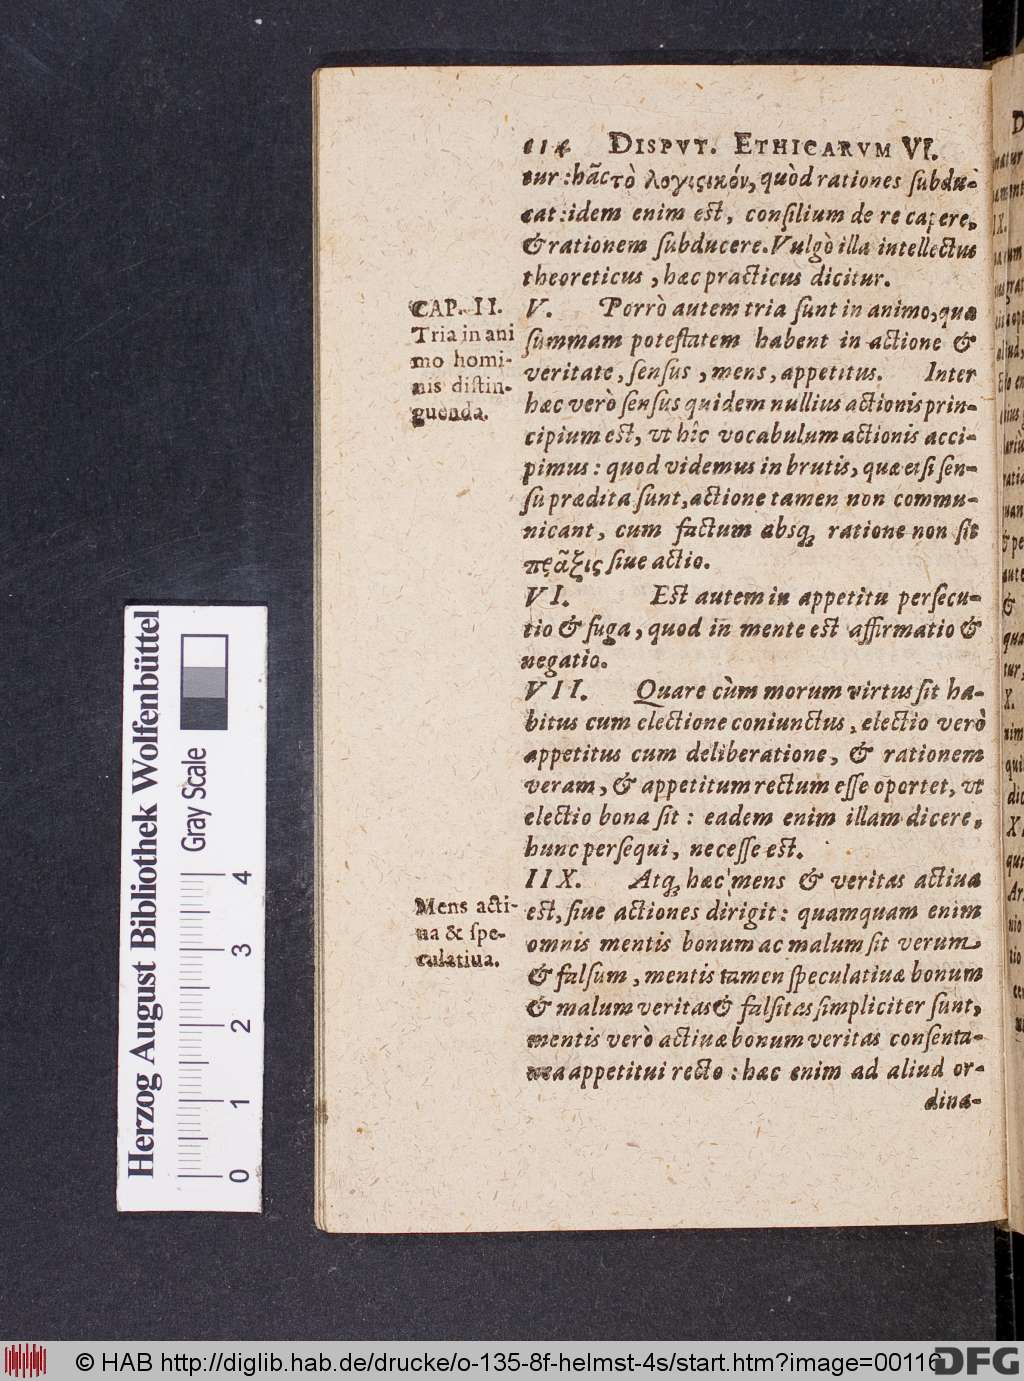 114 DISPVT. ETHICARVM VI.
tur: hãc τὸ λογιςικόν, quòd rationes ſubdu-
cat: idem enim eſt, conſilium de re capere,
& rationem ſubducere. Vulgò illa intellectus
theoreticus, hæc practicus dicitur.
CAP. II.
Tria in ani
mo homi-
nis diſtin-
guenda.
V. Porrò autem tria ſunt in animo, quæ
ſummam poteſtatem habent in actione &
veritate, ſenſus, mens, appetitus. Inter
hæc verò ſenſus quidem nullius actionis prin-
cipium eſt, vt hîc vocabulum actionis acci-
pimus: quod videmus in brutis, quæ etſi ſen-
ſu prædita ſunt, actione tamen non commu-
nicant, cum factum absq; ratione non ſit
πρᾶξις ſiue actio.
VI. Eſt autem in appetitu perſecu-
tio & fuga, quod in mente eſt affirmatio &
negatio.
VII. Quare cùm morum virtus ſit ha-
bitus cum electione coniunctus, electio verò
appetitus cum deliberatione, & rationem
veram, & appetitum rectum eſſe oportet, vt
electio bona ſit: eadem enim illam dicere,
hunc perſequi, neceſſe eſt.
Mens acti-
ua & ſpe-
culatiua.
IIX. Atq; hæc mens & veritas actiua
eſt, ſiue actiones dirigit: quamquam enim
omnis mentis bonum ac malum ſit verum
& falſum, mentis tamen ſpeculatiuæ bonum
& malum veritas & falſitas ſimpliciter ſunt,
mentis verò actiuæ bonum veritas conſenta-
nea appetitui recto: hæc enim ad aliud or-
dina-
Herzog August Bibliothek Wolfenbüttel
Gray Scale
0 1 2 3 4
© HAB http://diglib.hab.de/drucke/o-135-8f-helmst-4s/start.htm?image=00116
DFG